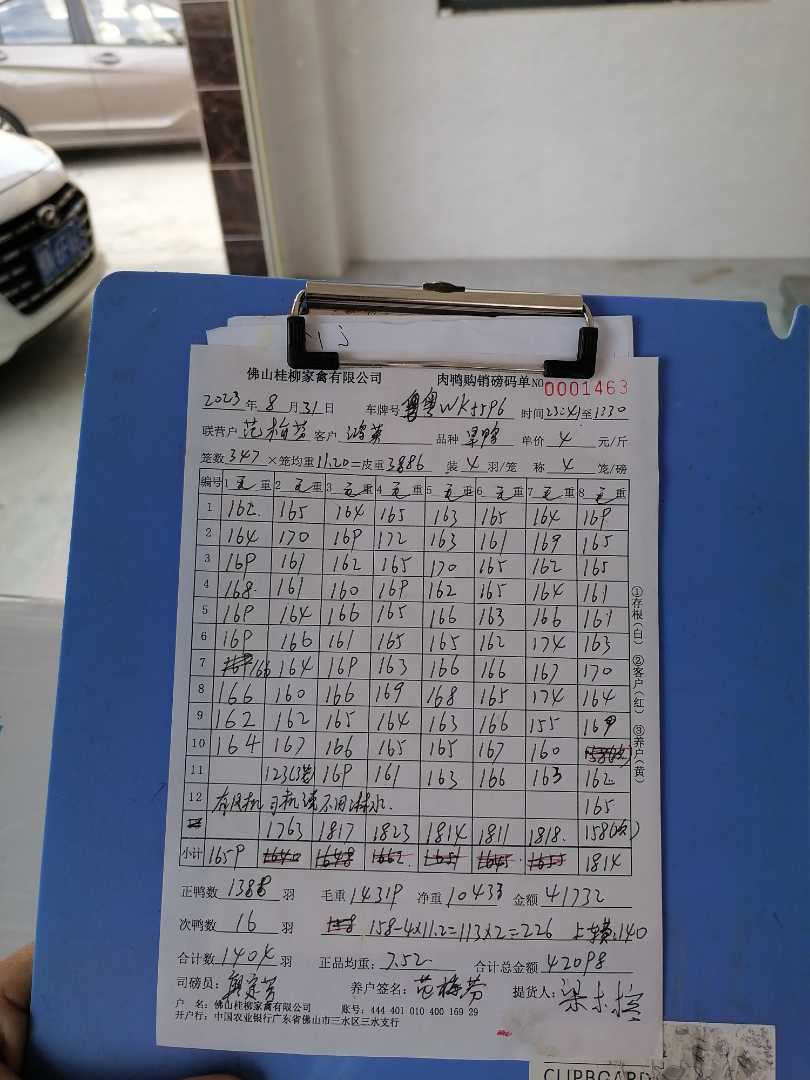 佛山桂柳家禽有限公司 肉鸭购销磅码单 NO 0001463
2023年8月31日 车牌号 粤WK5596 时间23:41至1230
联营户 范梅芬 客户 鸿英 品种 单价 4 元/斤
笼数 347 ×笼均重11.20=皮重3886 装 4 羽/笼 称 4 笼/磅
编号 1 毛重 2 毛重 3 毛重 4 毛重 5 毛重 6 毛重 7 毛重 8 毛重
1 162 165 164 165 163 165 164 169
2 164 170 169 172 163 161 169 165
3 169 161 162 165 170 165 162 165
4 168 161 160 169 162 165 164 161
5 169 164 166 165 166 163 166 161
6 169 166 161 165 165 162 174 163
7 166 164 169 163 166 166 163 170
8 166 160 166 169 168 165 174 164
9 162 162 165 164 163 166 155 169
10 164 167 166 165 165 167 160
11 123(3笼) 169 161 163 166 163 162
12 有风机 司机 不用淋水. 165
1763 1817 1823 1814 1811 1818. 158(次)
小计 1659 1640 1648 1662 1651 1645 1655 1814
正鸭数 1388 羽 毛重 14319 净重 10433 金额 41732
次鸭数 16 羽 158 158-4×11.2=113×2=226 140
合计数 1404 羽 正品均重: 7.52 合计总金额 42098
司磅员: 养户签名: 范梅芬 提货人:
户 名: 佛山桂柳家禽有限公司 账号: 444 401 010 400 169 29
开户行: 中国农业银行广东省佛山市三水区三水支行
①存根(白) ②客户(红) ③养户(黄)
CLIPBOARD